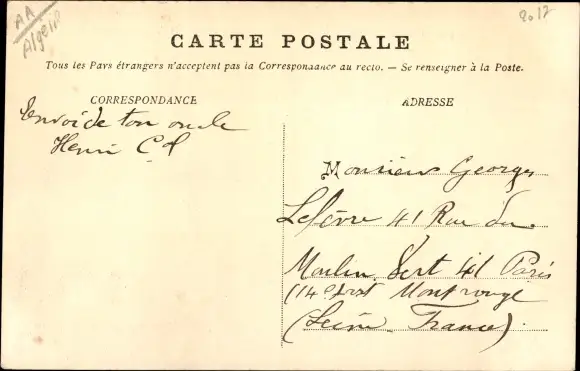 AA
Algérie
2017
CARTE POSTALE
Tous les Pays étrangers n'acceptent pas la Correspondance au recto. — Se renseigner à la Poste.
CORRESPONDANCE
Envoi de ton oncle
Henri
ADRESSE
Monsieur Georges
Lefèvre 41 Rue du
Moulin Vert 41 Paris
(14e Montrouge
(Seine France)